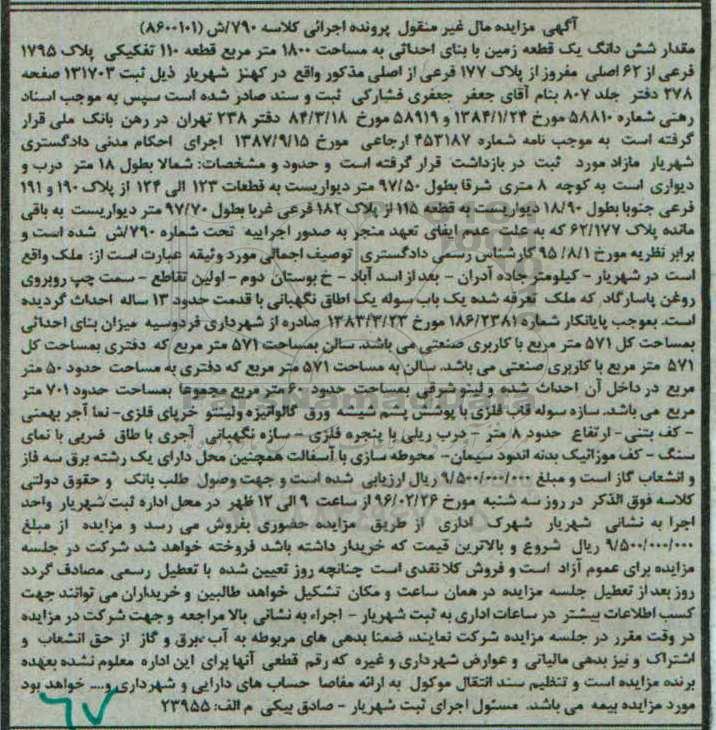 آگهی مزایده مال غیر منقول پرونده اجرائی کلاسه ۷۹۰/ش (۸۶۰۰۱۰۱)
مقدار شش دانگ یک قطعه زمین با بنای احداثی به مساحت ۱۸۰۰ متر مربع قطعه ۱۱۰ تفکیکی پلاک ۱۷۹۵
فرعی از ۶۲ اصلی مفروز از پلاک ۱۷۷ فرعی از اصلی مذکور واقع در کهنز شهریار ذیل ثبت ۱۳۱۷۰۳ صفحه
۲۷۸ دفتر جلد ۸۰۷ بنام آقای جعفر جعفری فشارکی ثبت و سند صادر شده است سپس به موجب اسناد
رهنی شماره ۵۸۸۱۰ مورخ ۱۳۸۴/۱/۲۴ و ۵۸۹۱۹ مورخ ۸۴/۳/۱۸ دفتر ۲۳۸ تهران در رهن بانک ملی قرار
گرفته است به موجب نامه شماره ۴۵۳۱۸۷ ارجاعی مورخ ۱۳۸۷/۹/۱۵ اجرای احکام مدنی دادگستری
شهریار مازاد مورد ثبت در بازداشت قرار گرفته است و حدود و مشخصات: شمالا بطول ۱۸ متر درب و
دیواری است به کوچه ۸ متری شرقا بطول ۹۷/۵۰ متر دیواریست به قطعات ۱۲۳ الی ۱۲۴ از پلاک ۱۹۰ و ۱۹۱
فرعی جنوبا بطول ۱۸/۹۰ دیواریست به قطعه ۱۱۵ از پلاک ۱۸۲ فرعی غربا بطول ۹۷/۷۰ متر دیواریست به باقی
مانده پلاک ۶۲/۱۷۷ که به علت عدم ایفای تعهد منجر به صدور اجراییه تحت شماره ۷۹۰/ش شده است و
برابر نظریه مورخ ۹۵/۸/۱ کارشناس رسمی دادگستری توصیف اجمالی مورد وثیقه عبارت است از: ملک واقع
است در شهریار - کیلومتر جاده آدران - بعد از اسد آباد - خ بوستان دوم - اولین تقاطع - سمت چپ روبروی
روغن پاسارگاد که ملک تعرفه شده یک باب سوله یک اطاق نگهبانی با قدمت حدود ۱۳ ساله احداث گردیده
است. بموجب پایانکار شماره ۱۸۶/۲۳۸۱ مورخ ۱۳۸۳/۳/۲۳ صادره از شهرداری فردوسیه میزان بنای احداثی
بمساحت کل ۵۷۱ متر مربع با کاربری صنعتی می باشد. سالن بمساحت ۵۷۱ متر مربع که دفتری بمساحت کل
۵۷۱ متر مربع با کاربری صنعتی می باشد. سالن به مساحت ۵۷۱ متر مربع که دفتری به مساحت حدود ۵۰ متر
مربع در داخل آن احداث شده و لینتو شرقی بمساحت حدود ۶۰ متر مربع مجموعا بمساحت حدود ۷۰۱ متر
مربع می باشد. سازه سوله قاب فلزی با پوشش پشم شیشه ورق گالوانیزه ولینتو خرپای فلزی- نما آجر بهمنی
- کف بتنی- ارتفاع حدود ۸ متر - درب ریلی با پنجره فلزی - سازه نگهبانی آجری با طاق ضربی با نمای
سنگ - کف موزائیک بدنه اندود سیمان- محوطه سازی با آسفالت همچنین محل دارای یک رشته برق سه فاز
و انشعاب گاز است و مبلغ ۹/۵۰۰/۰۰۰/۰۰۰ ریال ارزیابی شده است و جهت وصول طلب بانک و حقوق دولتی
کلاسه فوق الذکر در روز سه شنبه مورخ ۹۶/۰۲/۲۶ از ساعت ۹ الی ۱۲ ظهر در محل اداره ثبت شهریار واحد
اجرا به نشانی شهریار شهرک اداری از طریق مزایده حضوری بفروش می رسد و مزایده از مبلغ
۹/۵۰۰/۰۰۰/۰۰۰ ریال شروع و بالاترین قیمت که خریدار داشته باشد فروخته خواهد شد شرکت در جلسه
مزایده برای عموم آزاد است و فروش کلا نقدی است چنانچه روز تعیین شده با تعطیل رسمی مصادف گردد
روز بعد از تعطیل جلسه مزایده در همان ساعت و مکان تشکیل خواهد طالبین و خریداران می توانند جهت
کسب اطلاعات بیشتر در ساعات اداری به ثبت شهریار - اجراء به نشانی بالا مراجعه و جهت شرکت در مزایده
در وقت مقرر در جلسه مزایده شرکت نمایند، ضمنا بدهی های مربوطه به آب، برق و گاز از حق انشعاب و
اشتراک و نیز بدهی مالیاتی و عوارض شهرداری و غیره که رقم قطعی آنها برای این اداره معلوم نشده بعهده
برنده مزایده است و تنظیم سند انتقال موکول به ارائه مفاصا حساب های دارایی و شهرداری و.... خواهد بود
مورد مزایده بیمه می باشد. مسئول اجرای ثبت شهریار - صادق بیکی م الف: ۲۳۹۵۵
۶۷
ParsNamadData